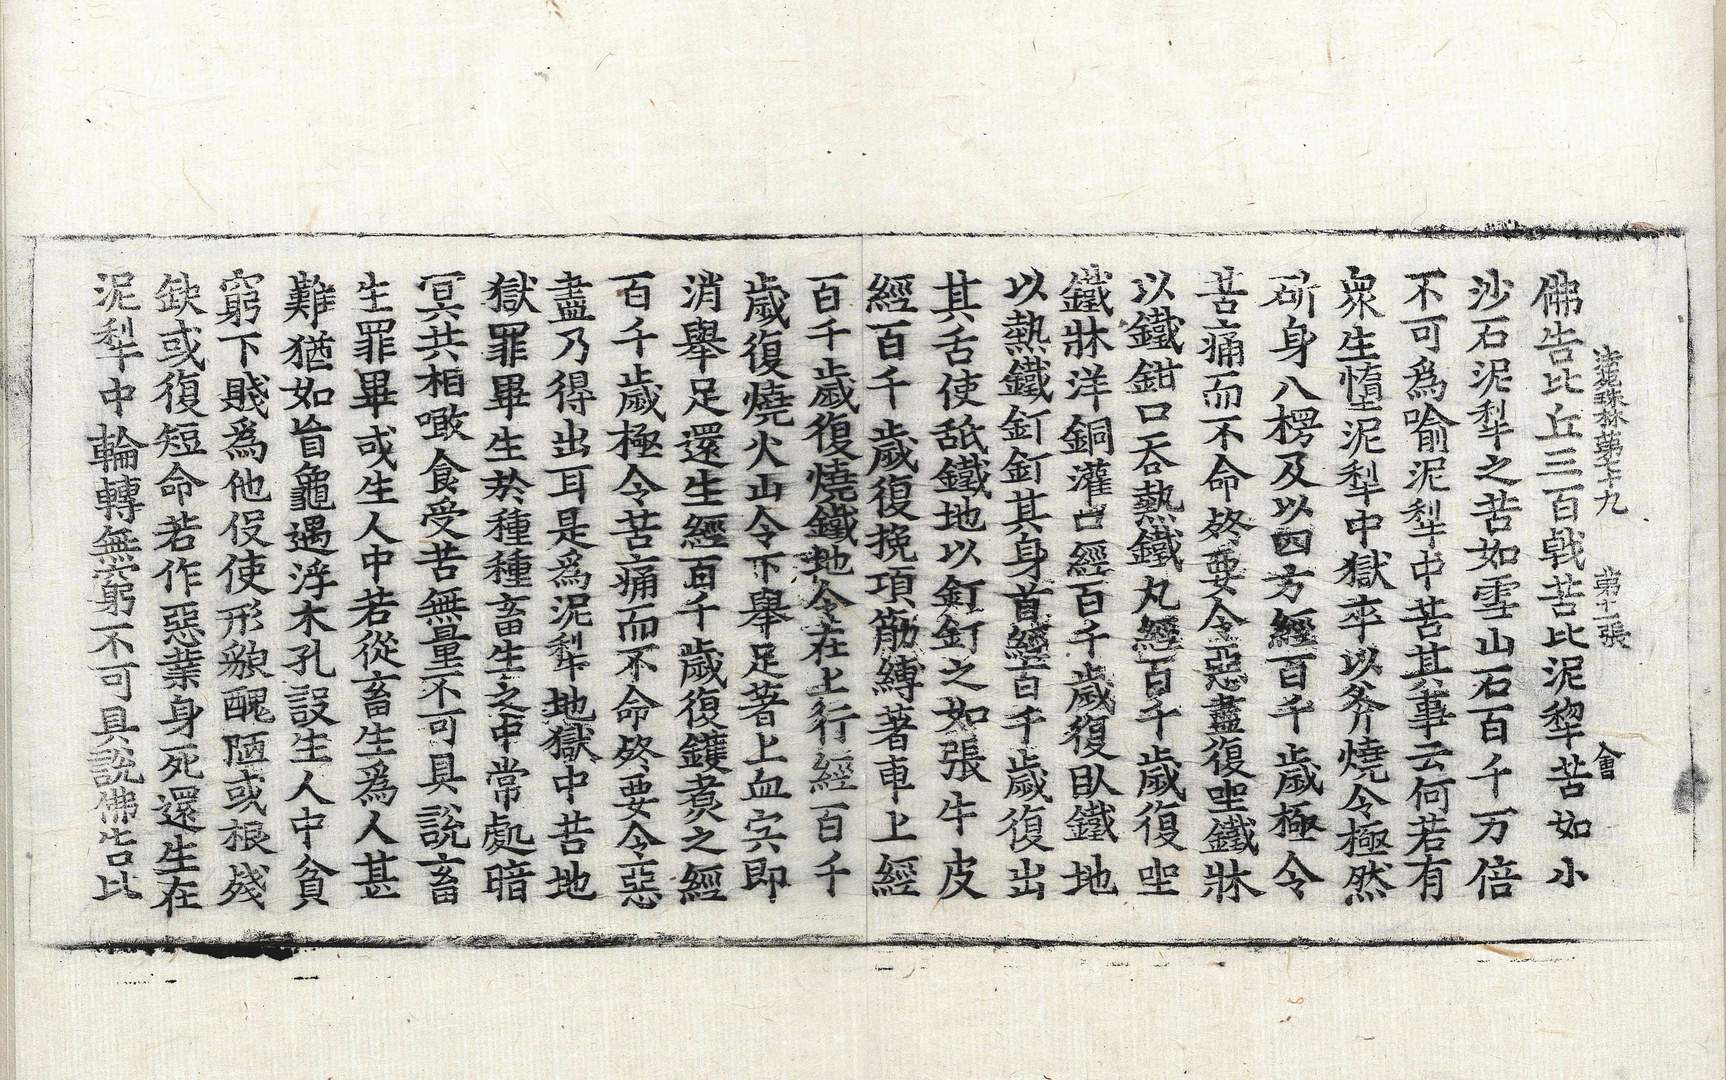 法苑珠林第七十九　第十一張　會
佛告比丘三百戟苦比泥犂苦如小
沙石泥犂之苦如雪山石百千万倍
不可爲喻泥犂中苦其事云何若有
衆生墮泥犂中獄卒以斧燒令極然
斫身八楞及以四方經百千歲極令
苦痛而不命終要令惡盡復坐鐵牀
以鐵鉗口吞熱鐵丸經百千歲復坐
鐵牀洋銅灌口經百千歲復臥鐵地
以熱鐵釘釘其身首經百千歲復出
其舌使舐鐵地以釘釘之如張牛皮
經百千歲復挽項筋縛著車上經
百千歲復燒鐵地令在上行經百千
歲復燒火山令下舉足著上血宍即
消舉足還生經百千歲復鑊煑之經
百千歲極令苦痛而不命終要令惡
盡乃得出耳是爲泥犂地獄中苦地
獄罪畢生於種種畜生之中常處暗
冥共相噉食受苦無量不可具說畜
生罪畢或生人中若從畜生爲人甚
難猶如盲龜遇浮木孔設生人中貧
窮下賤爲他伇使形貌醜陋或根殘
缺或復短命若作惡業身死還生在
泥犂中輪轉無窮不可具說佛告比